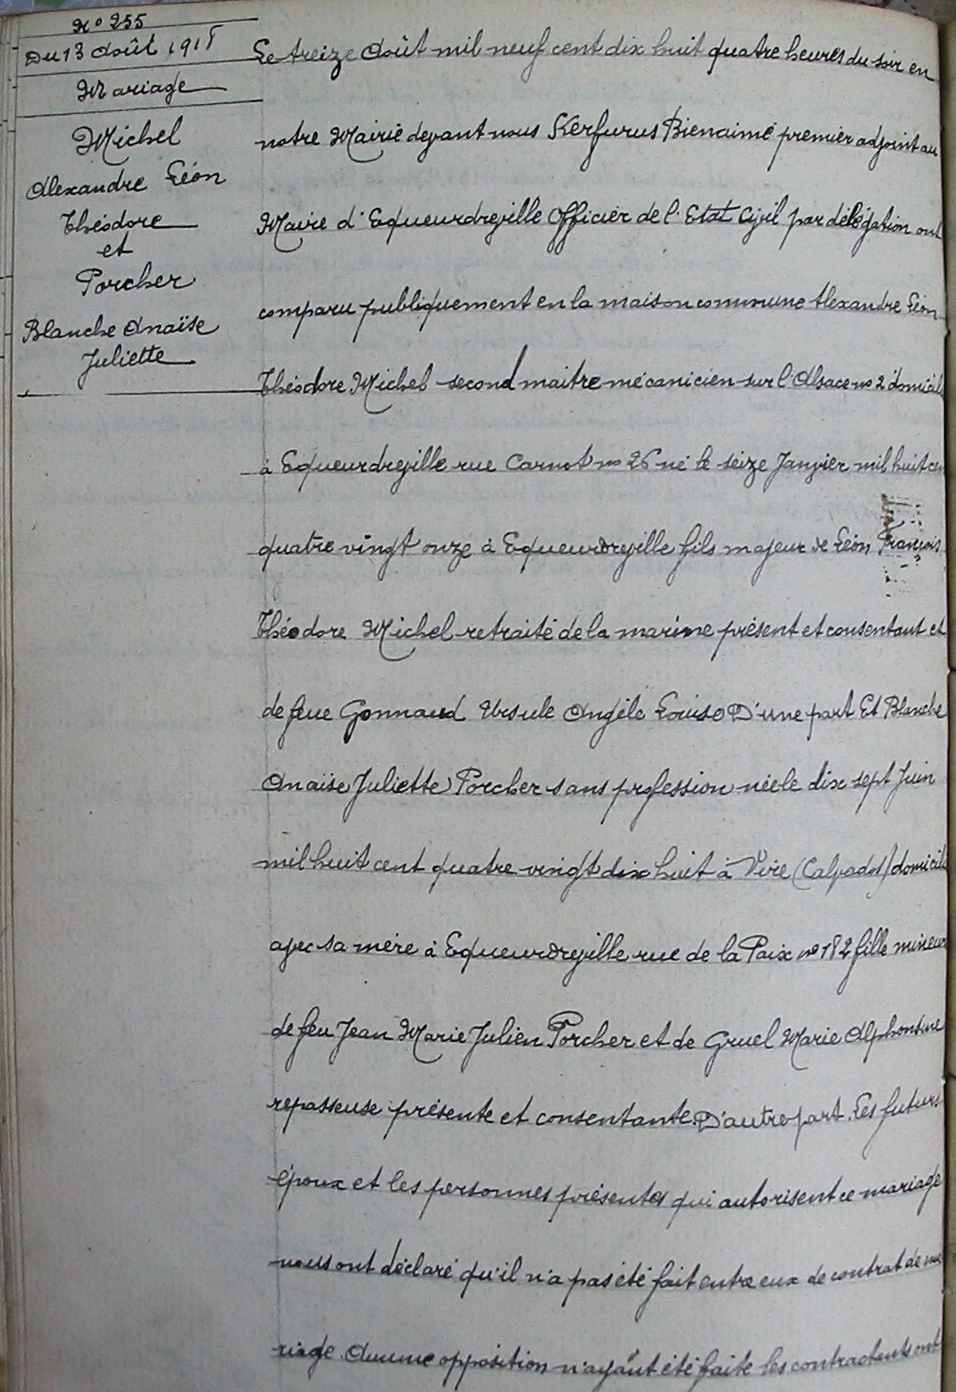 N° 255
Du 13 Août 1918
Mariage
Michel
Alexandre Léon
Théodore
et
Porcher
Blanche Anaïse
Juliette
Le treize Août mil neuf cent dix huit quatre heures du soir en
notre Mairie devant nous Kerfurus Bienaimé premier adjoint au
Maire d'Equeurdreville Officier de l'Etat Civil par délégation ont
comparu publiquement en la maison commune Alexandre Léon
Théodore Michel second maitre mécanicien sur l'Alsace no 2 domicil
à Equeurdreville rue Carnot no 26 né le seize Janvier mil huit cen
quatre vingt onze à Equeurdreville fils majeur de Léon François
Théodore Michel retraité de la marine présent et consentant et
de feue Gonnaud Ursule Angèle Louise D'une part Et Blanche
Anaïse Juliette Porcher sans profession née le dix sept Juin
mil huit cent quatre vingt dix huit à Vire (Calvados) domicili
avec sa mère à Equeurdreville rue de la Paix no 182 fille mineur
de feu Jean Marie Julien Porcher et de Gruel Marie Alphonsine
repasseuse présente et consentante. D'autre part. Les futurs
époux et les personnes présentes qui autorisent ce mariage
nous ont déclaré qu'il n'a pas été fait entre eux de contrat de ma
riage. Aucune opposition n'ayant été faite les contractants ont